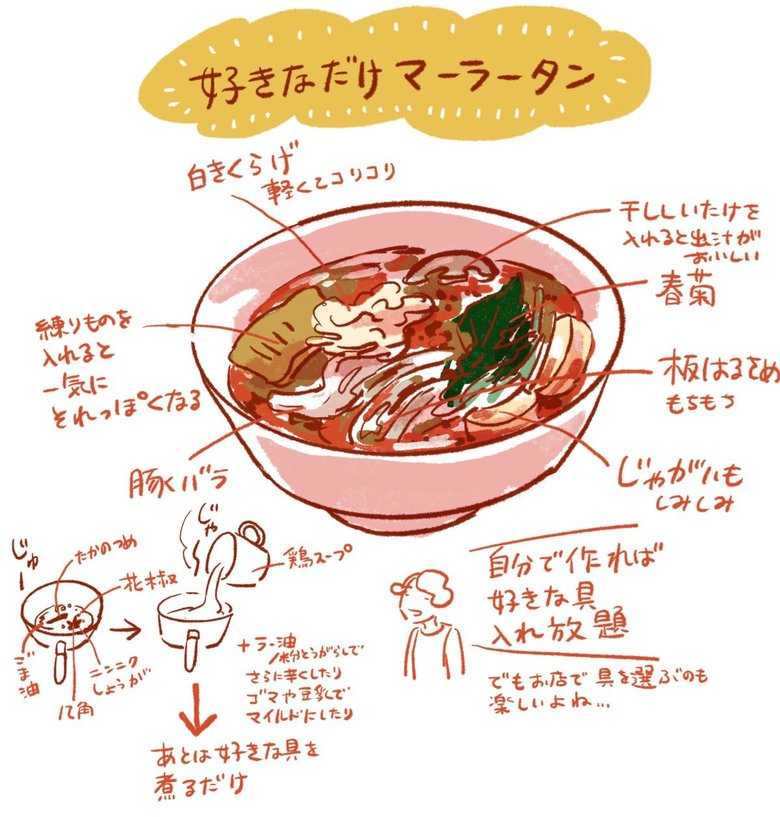 好きなだけマーラータン
白きくらげ
軽くてコリコリ
干ししいたけを
入れると出汁が
おいしい
春菊
練りものを
入れると
一気に
それっぽくなる
板はるさめ
もちもち
豚バラ
じゃがいも
しみしみ
じゅー
たかのつめ
花椒
ごま油
八角
ニンニク
しょうが
じゃー
鶏スープ
+ラー油
粉とうがらしで
さらに辛くしたり
ゴマや豆乳で
マイルドにしたり
あとは好きな具を
煮るだけ
自分で作れば
好きな具
入れ放題
でもお店で具を選ぶのも
楽しいよね…